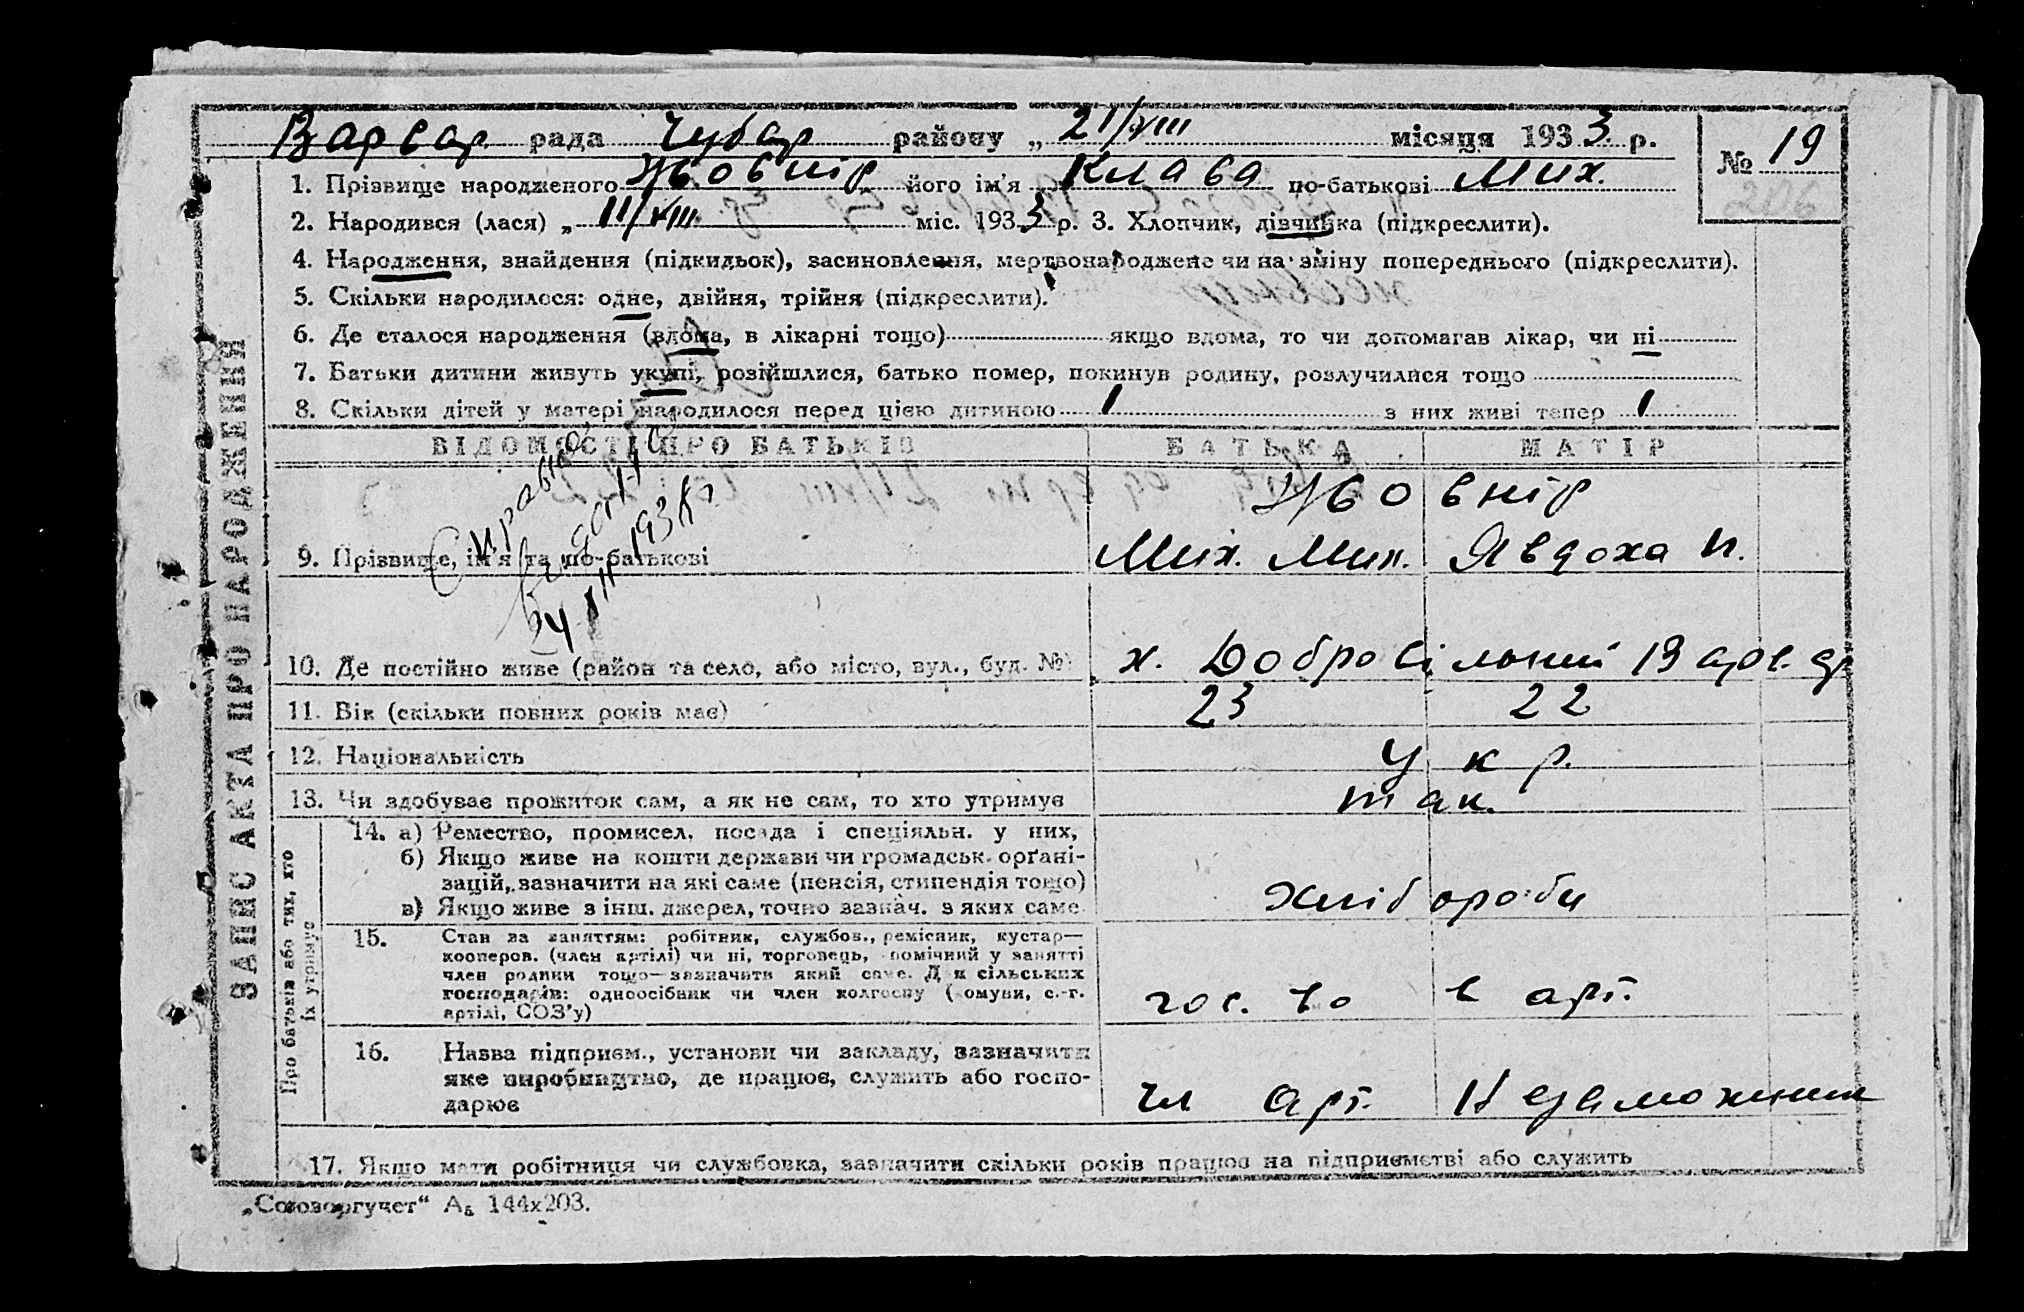 Варвар рада Чубар району „ 21/VIII місяця 1933 р.
№ 19
206
1. Прізвище народженого Жовнір його ім'я Клава по-батькові Мих.
2. Народився (лася) „ 11/VIII міс. 1933 р. 3. Хлопчик, дівчинка (підкреслити).
4. Народження, знайдення (підкидьок), засиновлення, мертвонароджене чи на зміну попереднього (підкреслити).
5. Скільки народилося: одне, двійня, трійня (підкреслити).
6. Де сталося народження (вдома, в лікарні тощо) якщо вдома, то чи допомагав лікар, чи ні
7. Батьки дитини живуть укупі, розійшлися, батько помер, покинув родину, розлучилися тощо
8. Скільки дітей у матері народилося перед цією дитиною 1 з них живі тепер 1
ВІДОМОСТІ ПРО БАТЬКІВ БАТЬКА МАТІР
Жовнір
9. Прізвище, ім'я та по-батькові Мих. Мих. Явдоха П.
193
10. Де постійно живе (район та село, або місто, вул., буд. №) х. Добровільний
11. Вік (скільки повних років має) 23 22
12. Національність Укр.
13. Чи здобуває прожиток сам, а як не сам, то хто утримує так.
14. а) Ремество, промисел, посада і спеціяльн. у них,
б) Якщо живе на кошти держави чи громадськ. орґані-
зацій, зазначити на які саме (пенсія, стипендія тощо)
в) Якщо живе з інш. джерел, точно зазнач. з яких саме
хліб ороби
15. Стан за заняттям: робітник, службов., ремісник, кустар—
кооперов. (член артілі) чи ні, торговець, помічний у занятті
член родини тощо—зазначити який саме. Для сільських
господарів: одноосібник чи член колгоспу (комуни, с.-г.
артілі, СОЗ'у)
гос. во в арт.
16. Назва підприєм., установи чи закладу, зазначити
яке виробництво, де працює, служить або госпо-
дарює
чл арт. Незаможник
17. Якщо мати робітниця чи службовка, зазначити скільки років працює на підприємстві або служить
ЗАПИС АКТА ПРО НАРОДЖЕННЯ
Про батьків або тих, хто
їх утримує
„Союзоргучет“ А₅ 144х203.